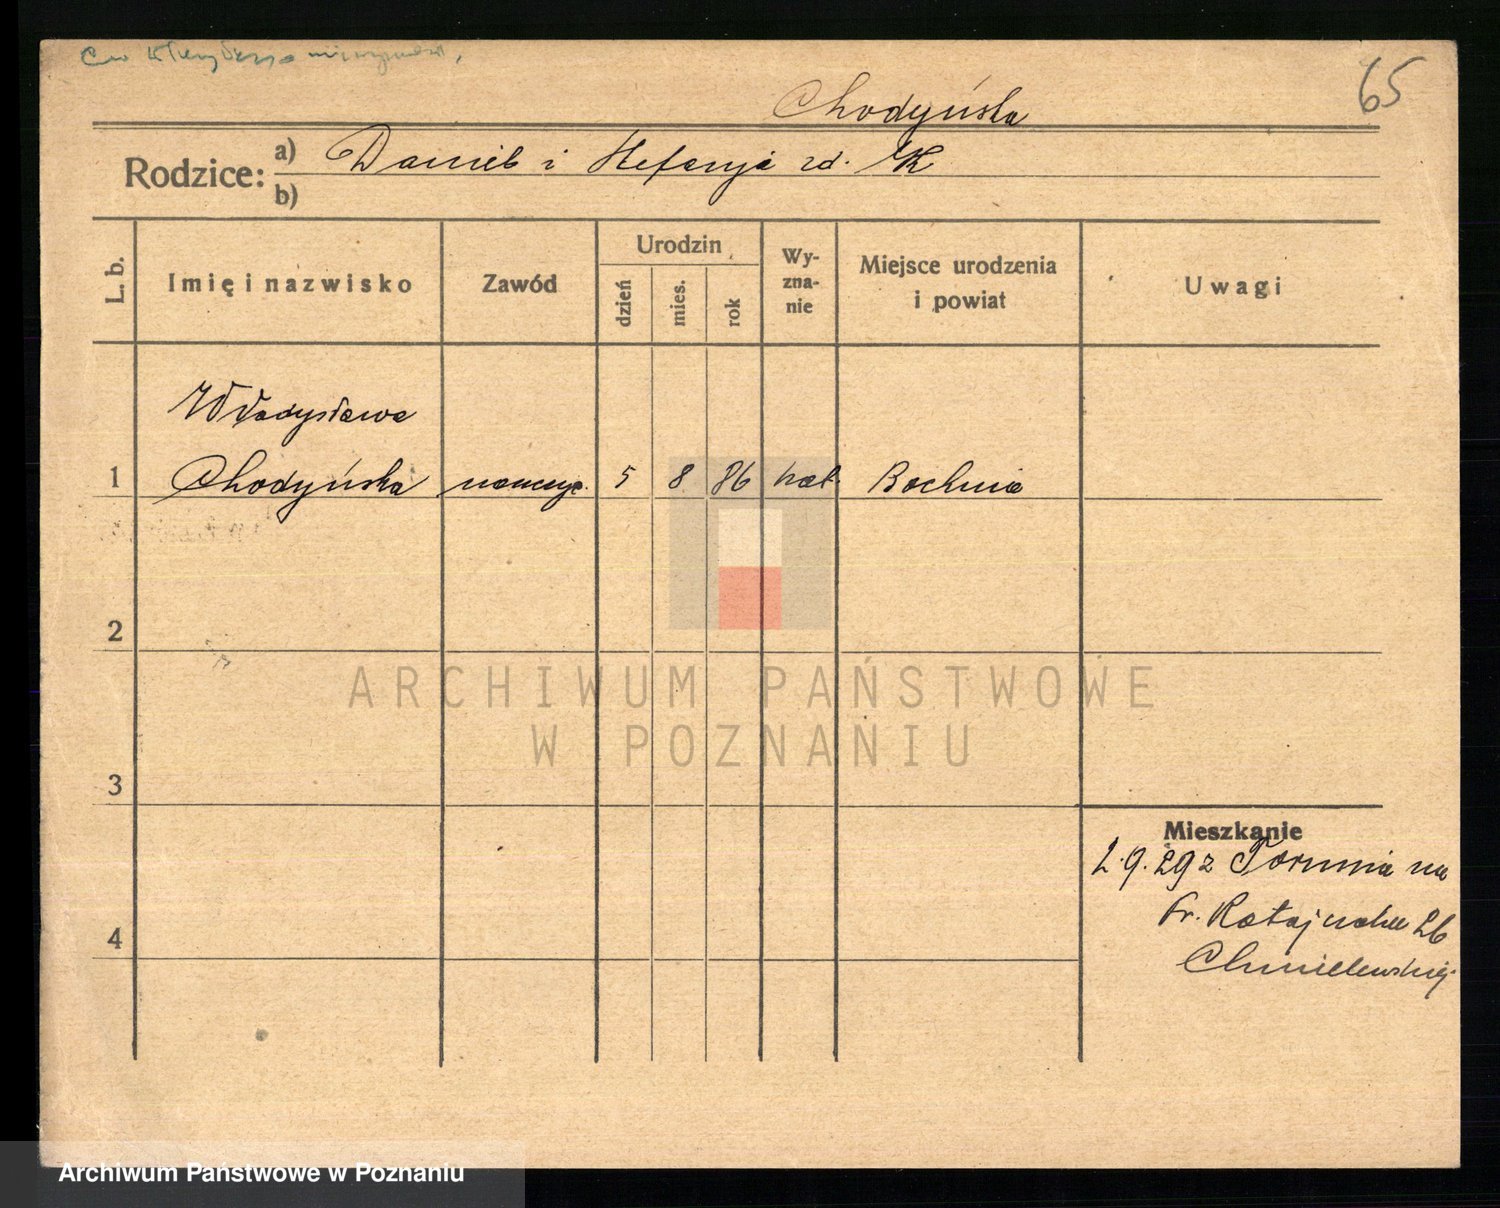 65
Chodyńska
Rodzice: a) Daniel i Stefanja zd. K
b)
L. b. Imię i nazwisko Zawód Urodzin dzień mies. rok Wy-zna-nie Miejsce urodzenia i powiat Uwagi
Władysława
1 Chodyńska nauczyc. 5 8 86 kat. Bochnia
2
ARCHIWUM PAŃSTWOWE
W POZNANIU
3
Mieszkanie
2.9.29 z Torunia na
Fr. Ratajczaka 26
4
Chmielewskiej
Archiwum Państwowe w Poznaniu